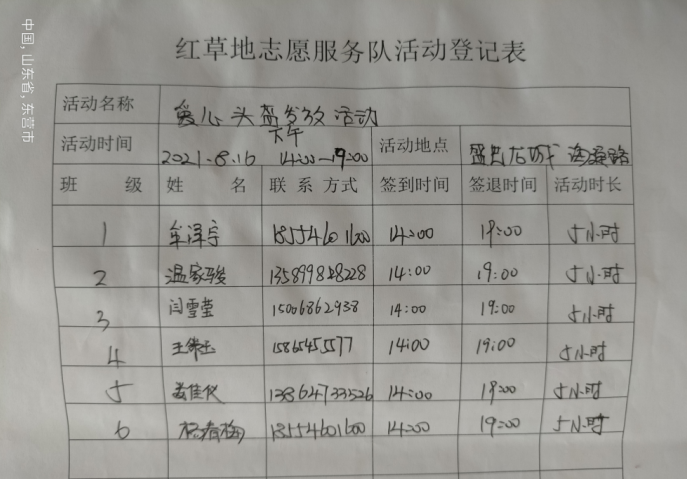 中国,山东省,东营市
红草地志愿服务队活动登记表
活动名称 爱心头盔发放活动
活动时间 2021.8.16 下午 14:00—19:00 活动地点
班 级 姓 名 联系方式 签到时间 签退时间 活动时长
1 牟泽宇 18554601600 14:00 19:00 5小时
2 温家骏 14:00 19:00 5小时
3 闫雪莹 15006862938 14:00 19:00 5小时
4 15865455577 14:00 19:00 5小时
5 14:00 19:00 5小时
6 杨春梅 18554601600 14:00 19:00 5小时